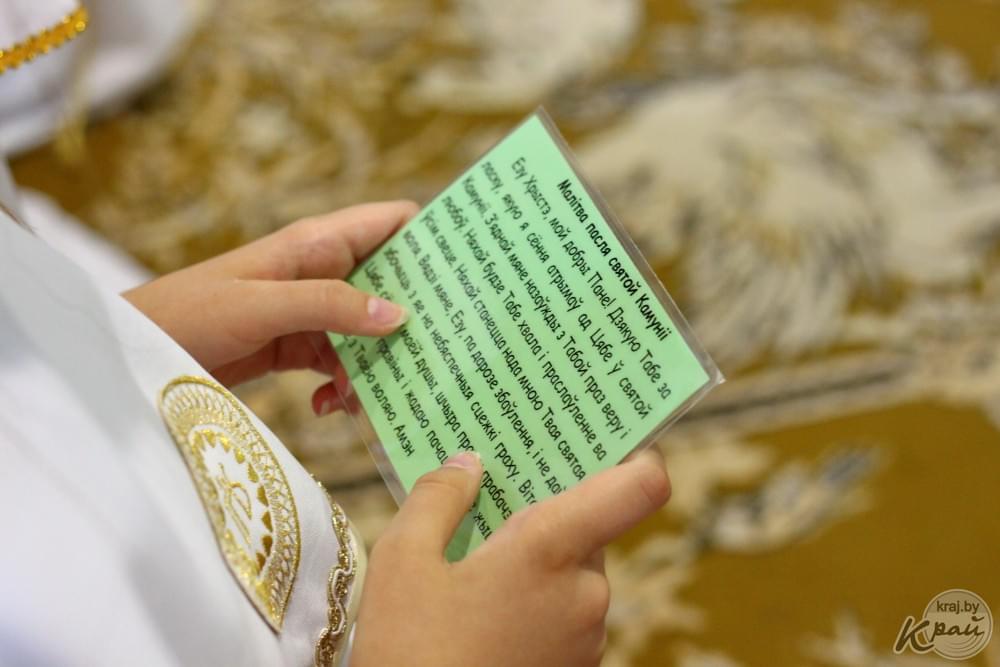 Малітва пасля святой Камуніі
Езу Хрыстэ, мой добры Пане! Дзякую Табе за
ласку, якую я сёння атрымаў ад Цябе ў святой
Камуніі. З'яднай мяне назаўжды з Табой праз веру і
любоў. Няхай будзе Табе хвала і праслаўленне ва
ўсім свеце. Няхай станецца нада мною Твая святая
воля. Вядзі мяне, Езу, па дарозе збаўлення, і не
збочыць з яе на небяспечныя сцежкі граху.
Цябе душы, шчыра
правіны, і жадаю
з Тваёю воляю. Амэн
kraj.by
Край